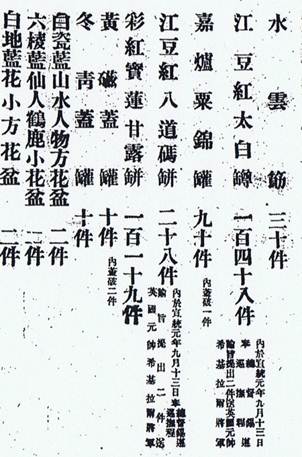 水雲 三十件
江豆紅太白罇 一百四十八件
內於宣統元年九月十三日
奉總督錫遵巡撫程
諭旨提出二件送英國元帥
希基拉爾將軍
嘉爐粟錦罐 九十件 內蓋破一件
江豆紅八道碼缾 二十八件
內於宣統元年九月十三日奉總督錫遵巡撫程
諭旨提出二件送
英國元帥希基拉爾將軍
彩紅寶蓮甘露缾 一百一十九件
黃磁蓋罐 十件 內蓋破二件
冬青蓋罐 十件
白瓷藍山水人物方花盆 二件
六棱藍仙人鶴鹿小花盆 件
白地藍花小方花盆 二件